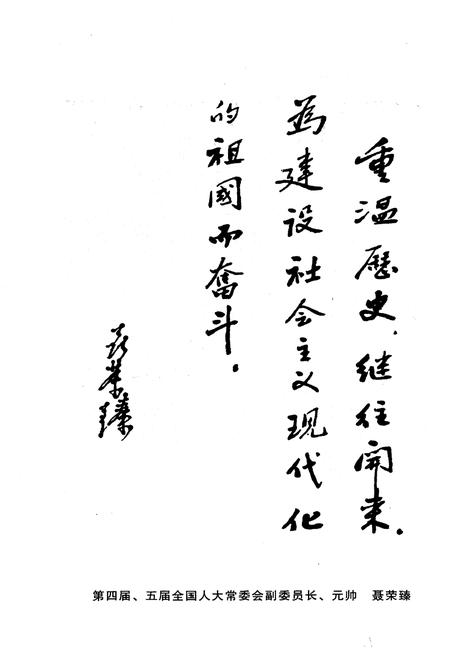 重温歷史，继往開来，
为建设社会主义现代化
的祖國而奮斗。
聂荣臻
第四届、五届全国人大常委会副委员长、元帅　聂荣臻